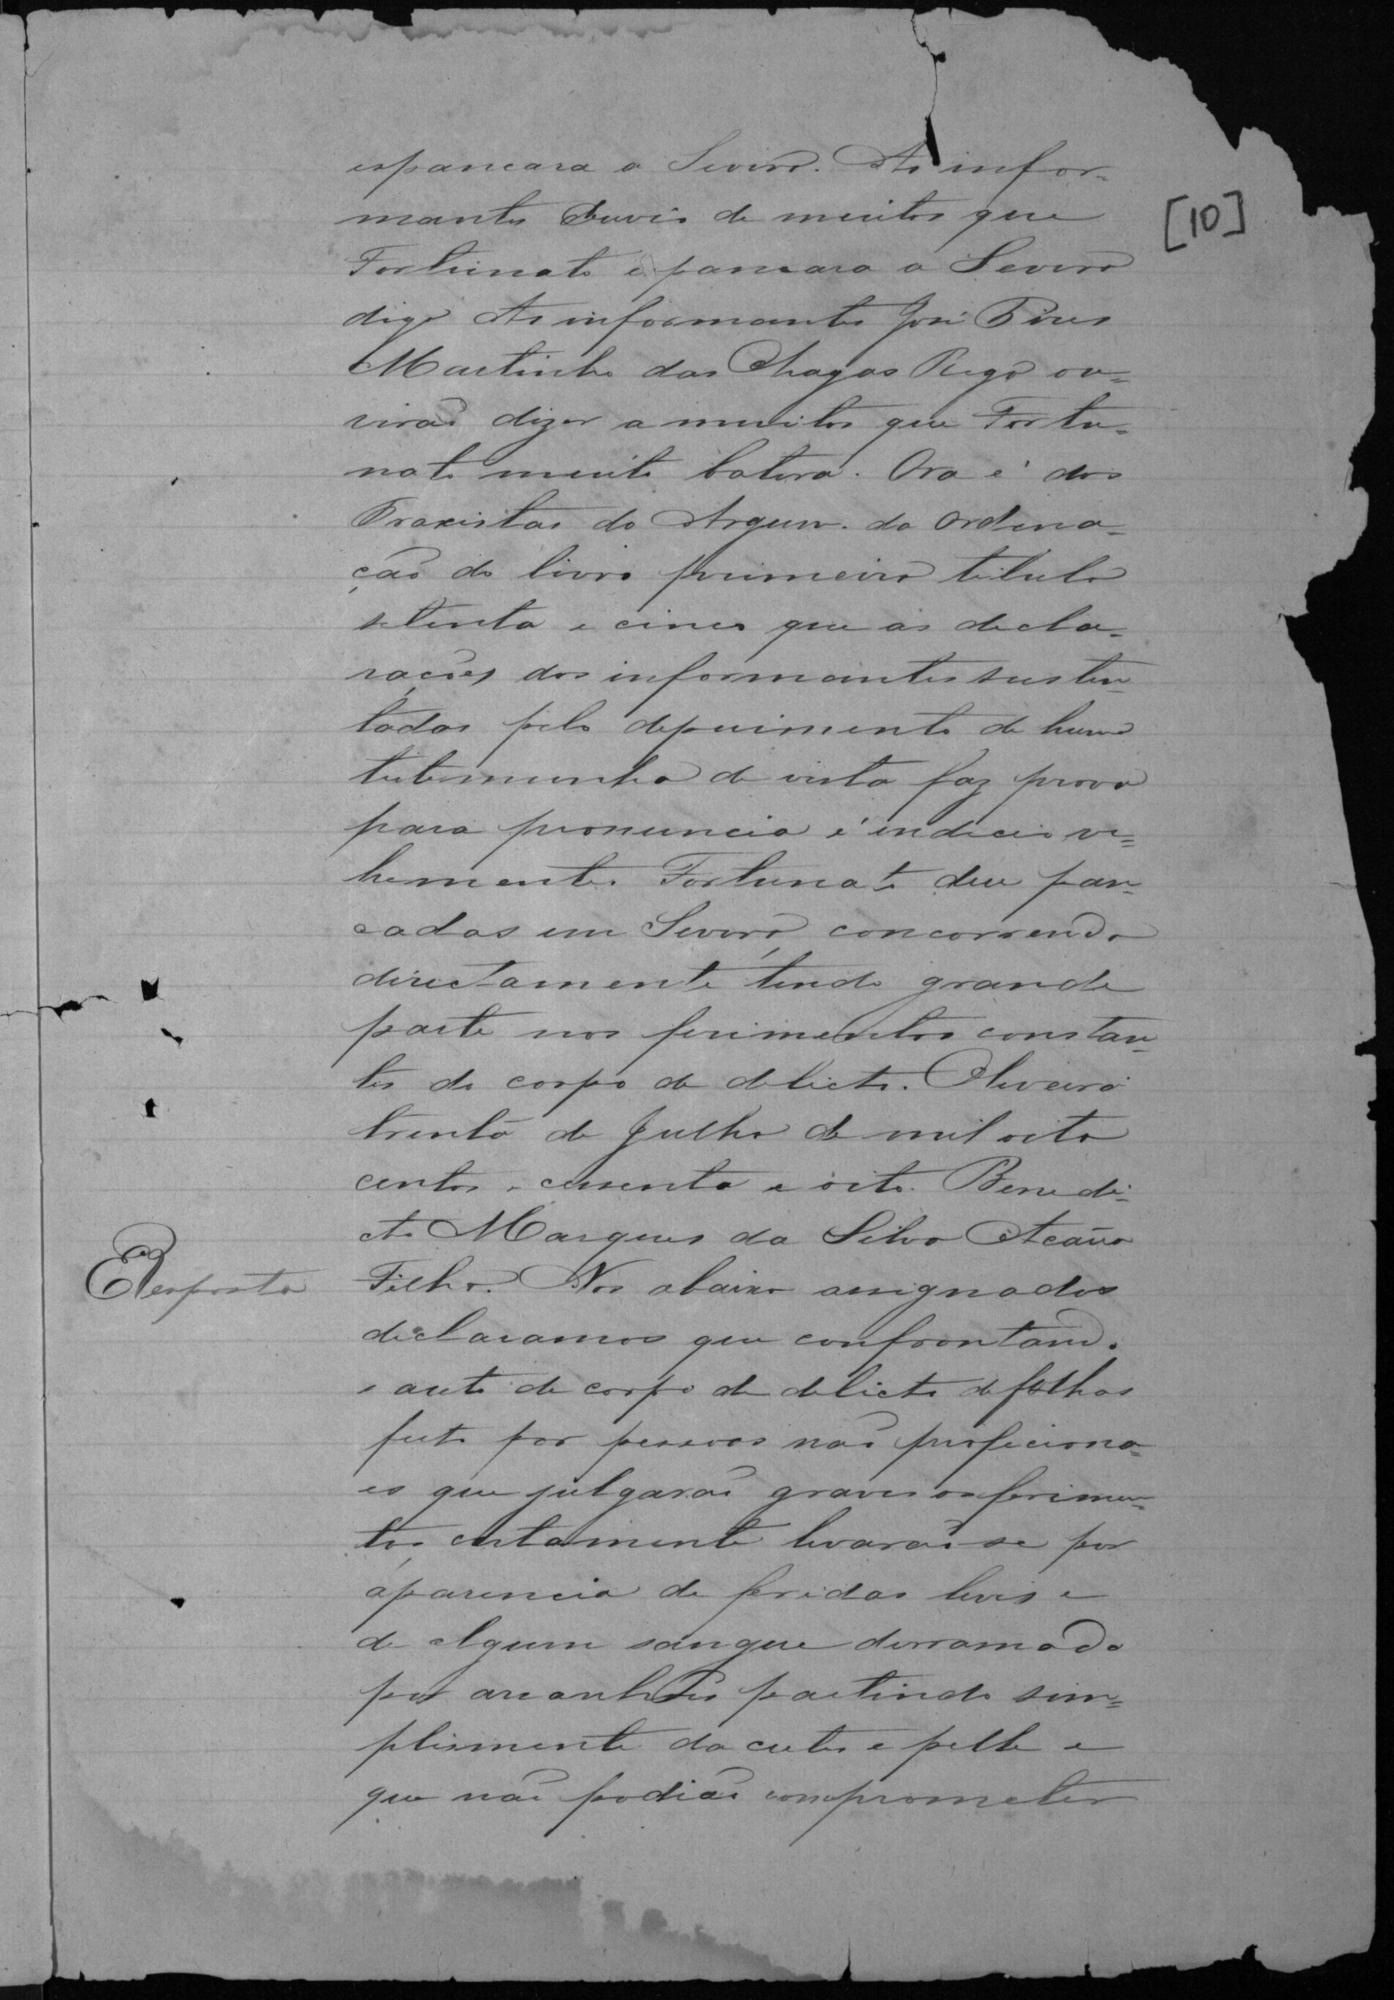 espancara a Severo. As infor-
mantes Ouvio de muitos que
[10]
Fortunato espancara a Severo
digo As informantes José Pires
Martinho das Chagas Rego ou=
virão dizer a muitos que Fortu=
nato muito batera. Ora é dos
Praxistas do Argum. da Ordena=
ção do livro primeiro titulo
setenta e cinco que as decla=
rações dos informantes susten=
tadas pelo depuimento de huma
testemunha de vista faz prova
para pronuncia é indicio ve=
hemente. Fortunato deu pan=
cadas em Severo, concorrendo
directamente tendo grande
parte nos ferimentos constan=
tes do corpo de delicto. Oliveira
trenta de Julho de mil oito
centos e coenta e oito. Benedi=
cto Marques da Silva Acauã
Resposta
Filho. Nos abaixo assignados
declaramos que confrontando
o auto de corpo de delicto de folhas
feito por pessoas não proficiona=
es que julgarão graves os ferimen=
tos, certamente levarão-se por
aparencia de feridas leves e
de algum sangue derramado
por aranhões partindo sim=
plismente da cutis e pelle e
que não podião comprometer